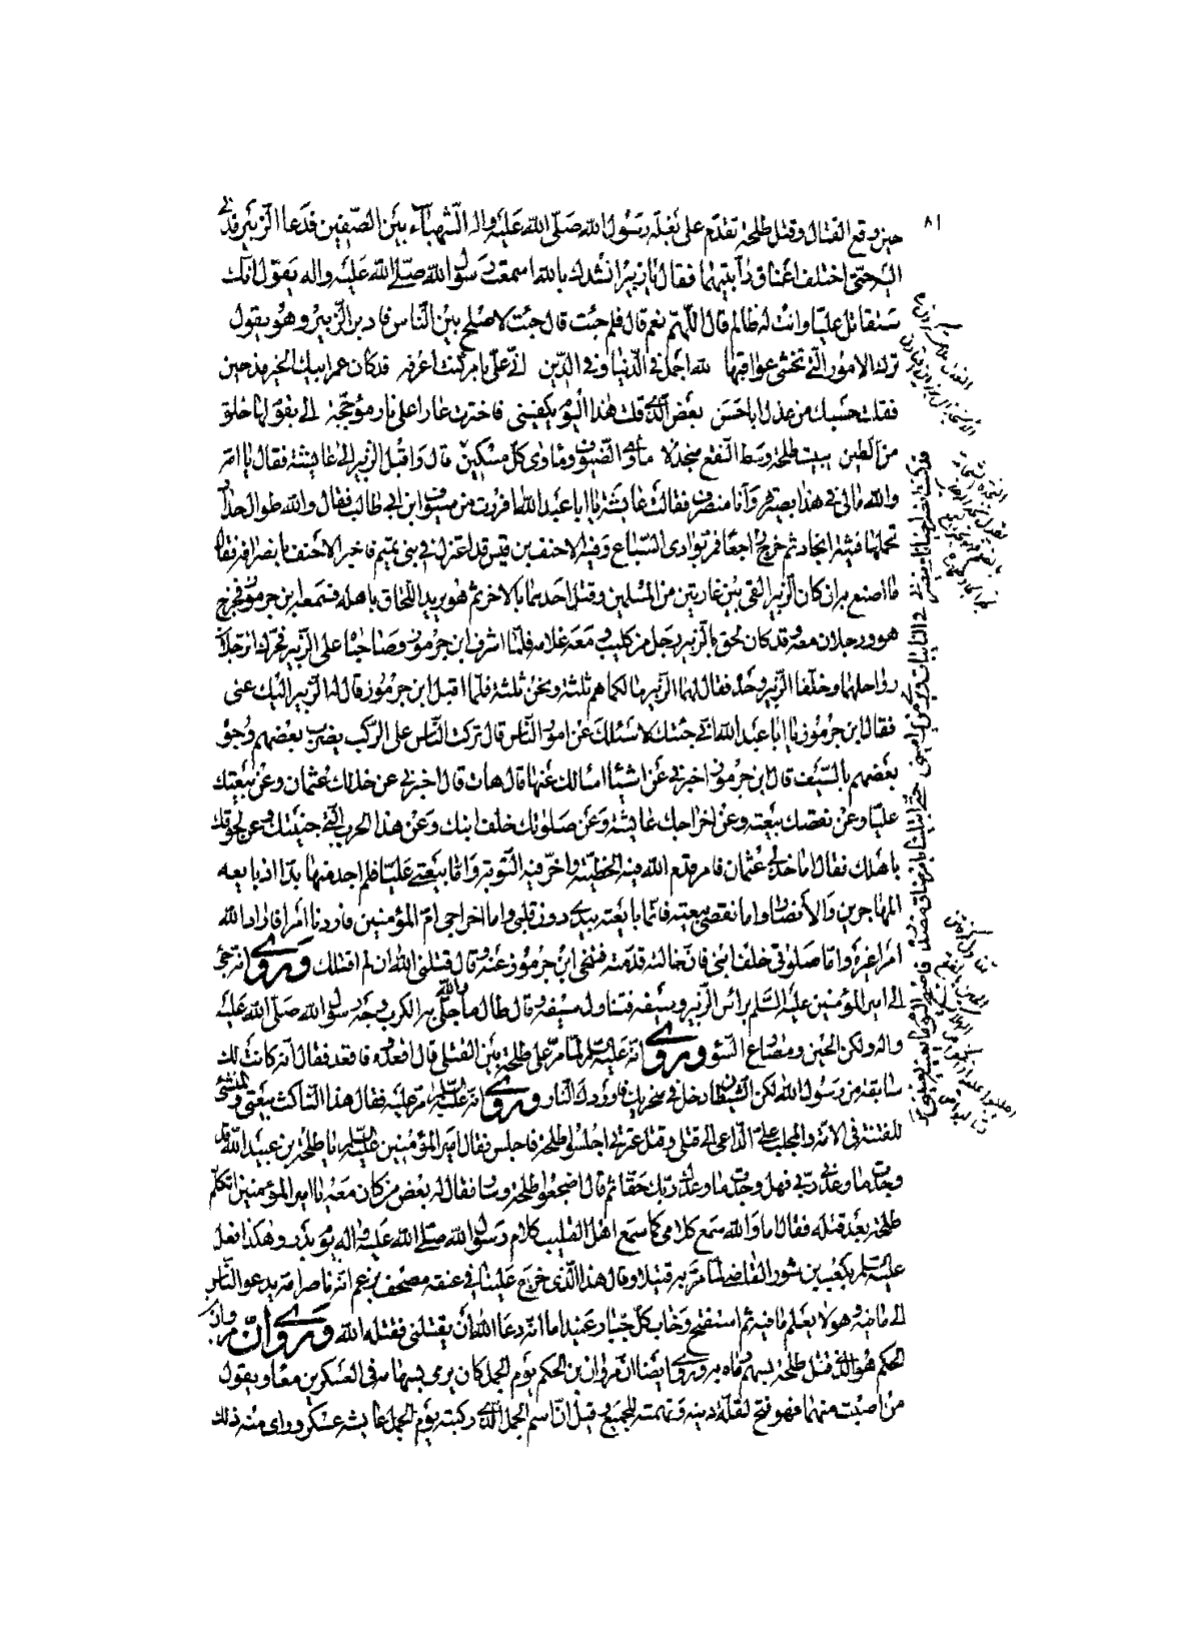 ٨١
حين وقع القتال وقتل طلحة تقدم على بغلة رسول الله صلى الله عليه واله الشهباء بين الصفين فدعا الزبير فدنى
اليه حتى اختلف اعناق دابتيهما فقال يا زبير انشدك بالله اسمعت رسول الله صلى الله عليه واله يقول انك
ستقاتل عليا وانت له ظالم قال اللهم نعم قال فلم جئت قال جئت لاصلح بين الناس فادبر الزبير وهو يقول
ترك الامور التي تخشى عواقبها لله اجمل في الدنيا وفي الدين اتى علي بامر كنت اعرفه قد كان عمر ابيك الخير مذ حين
فقلت حسبك من عذل ابا حسن بعض الذي قلت هذا اليوم يكفيني فاخترت عارا على نار مؤججة انى يقوم لها خلق
من الطين نبئت طلحة وسط النقع منجدلا مأوى الضيوف ومأوى كل مسكين قال واقبل الزبير الى عايشة فقال يا امه
والله مالي في هذا بصيرة وأنا منصرف فقالت عايشة يا ابا عبد الله افررت من سيوف ابن ابي طالب فقال والله طوال حداد
تحملها فتية انجاد ثم خرج راجعا فمر بوادى السباع وفيه الاحنف بن قيس قد اعتزل في بني تميم فاخبر الاحنف بانصرافه فقال
ما اصنع به ان كان الزبير القى بين غاريتين من المسلمين وقتل احدهما بالاخر ثم هو يريد اللحاق باهله فسمعه ابن جرموز فخرج
هو ورجلان معه وقد كان لحق بالزبير رجل من كليب ومعه غلامه فلما اشرف ابن جرموز وصاحباه على الزبير فحرك الرجلان
رواحلهما وخلفا الزبير وحده فقال لهما الزبير مالكما هم ثلثة ونحن ثلثة فلما اقبل ابن جرموز قال له الزبير اليك عنى
فقال ابن جرموز يا ابا عبد الله انى جئتك لاسئلك عن امور الناس قال تركت الناس على الركب يضرب بعضهم وجوه
بعضهم بالسيف قال ابن جرموز اخبرنى عن اشياء اسالك عنها قال هات قال اخبرنى عن خذلك عثمان وعن بيعتك
عليا وعن نقضك بيعته وعن اخراجك عايشة وعن صلوتك خلف ابنك وعن هذا الحرب التى جنيتها وعن لحوقك
باهلك فقال اما خذلى عثمان فامر قدم الله فيه الخطيئة واخر فيه التوبة واما بيعتى عليا فلم اجد منها بدا اذ بايعه
المهاجرين والانصار واما نقضى بيعته فانما بايعته بيدى دون قلبى واما اخراجى ام المؤمنين فاردنا امرا فاراد الله
امرا غيره واما صلوتى خلف ابنى فان خالته قدمته فتنحى ابن جرموز عنه وقال قتلنى الله ان لم اقتلك وروى انه جئ
الى امير المؤمنين عليه السلم براس الزبير وسيفه فتناول سيفه وقال طال ما والله جلى به الكرب عن وجه رسول الله صلى الله عليه
واله ولكن الحين ومصارع السوء وروى انه عليه السلم لما مر على طلحة بين القتلى قال اقعدوه فاقعد فقال انه كانت لك
سابقة من رسول الله لكن الشيطان دخل في منخريك فاوردك النار وروى انه عليه السلم مر عليه فقال هذا الناكث بيعتى والمنشئ
للفتنة في الامة والمجلب على الداعى الى قتلى وقتل عترتى اجلسوا طلحة فاجلس فقال امير المؤمنين عليه السلم يا طلحة بن عبيد الله قد
وجدت ما وعدنى ربى فهل وجدت ما وعدك ربك حقا ثم قال اضجعوا طلحة وسار فقال له بعض من كان معه يا امير المؤمنين اتكلم
طلحة بعد قتله فقال اما والله سمع كلامى كما سمع اهل القليب كلام رسول الله صلى الله عليه واله يوم بدر وهكذا فعل
عليه السلم بكعب بن شور القاضى لما مر به قتيلا وقال هذا الذى خرج علينا في عنقه مصحف يزعم انه ناصر امه يدعو الناس
الى ما فيه وهو لا يعلم ما فيه ثم استفتح وخاب كل جبار عنيد اما انه دعا الله أن يقتلنى فقتله الله وروى ان مروان بن
الحكم هو الذى قتل طلحة بسهم رماه به وروى ايضا ان مروان بن الحكم يوم الجمل كان يرمى بسهامه في العسكرين معا ويقول
من اصبت منهما فهو فتح لقلة دينه وتهمته للجميع وقيل ان اسم الجمل الذى ركبته يوم الجمل عايشة عسكر وراى منه ذلك